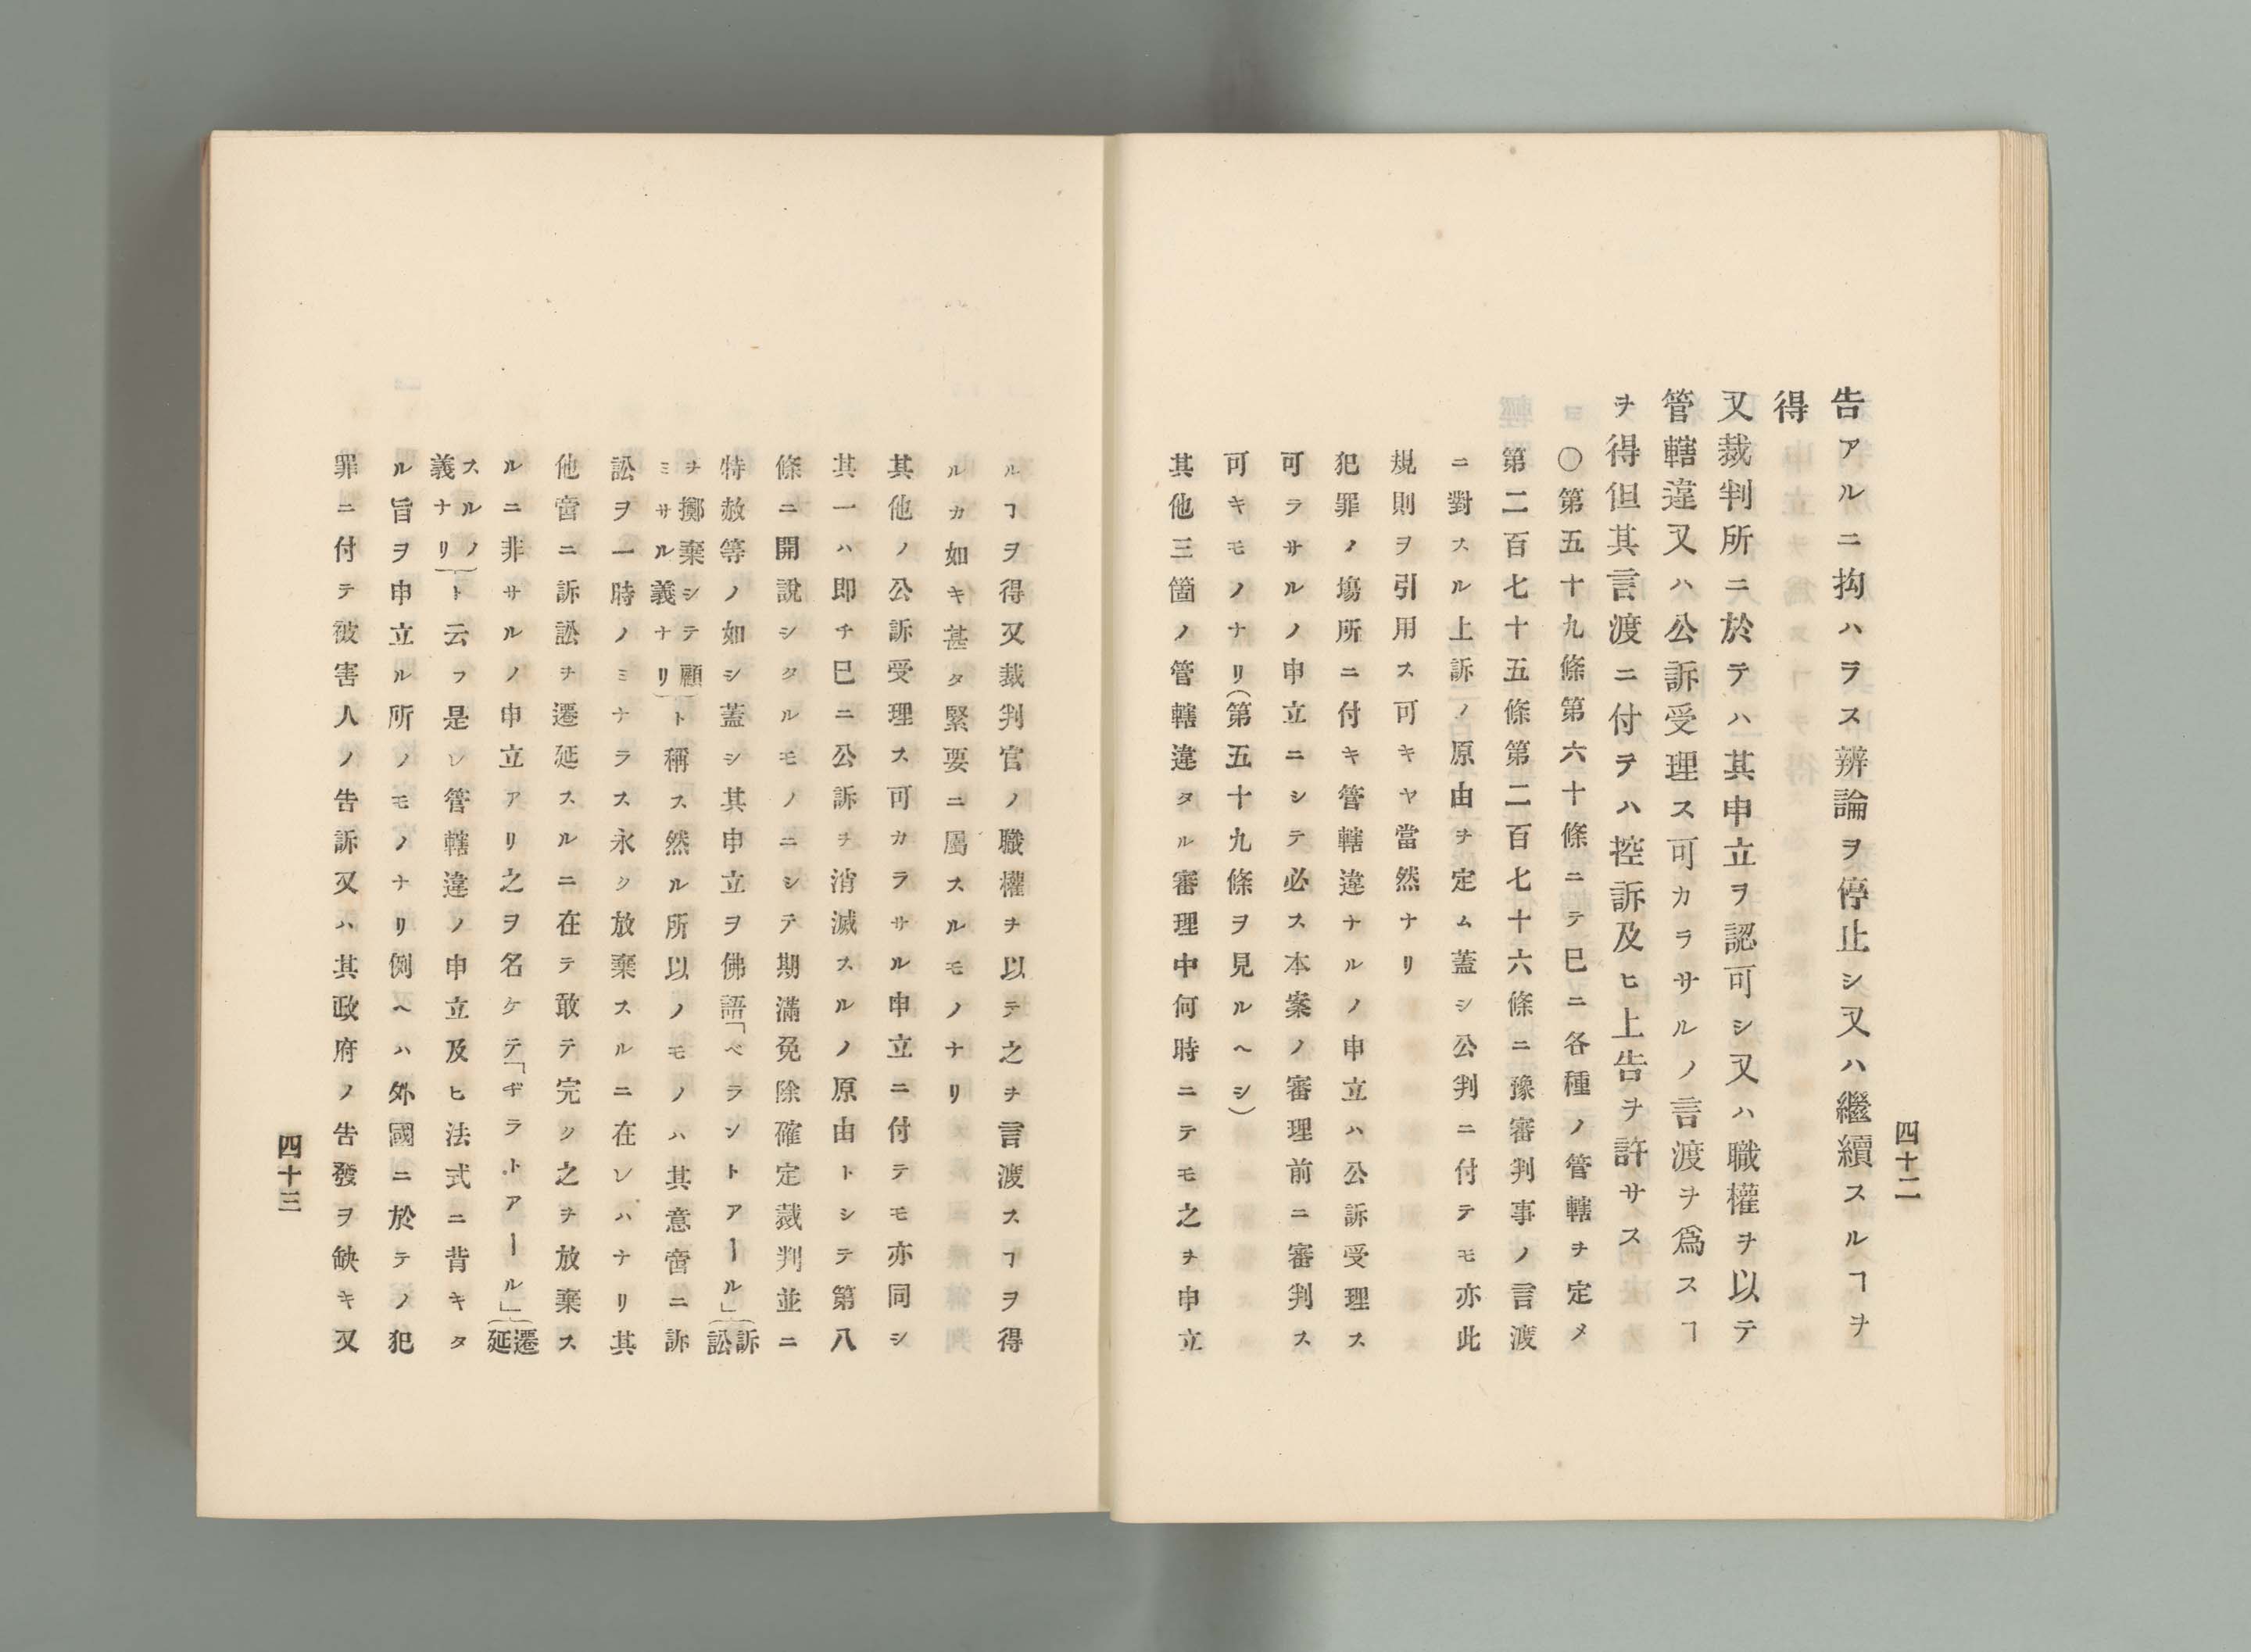 四十二
告アルニ拘ハラス辨論ヲ停止シ又ハ繼續スルヿヲ
得
又裁判所ニ於テハ其申立ヲ認可シ又ハ職權ヲ以テ
管轄違又ハ公訴受理ス可カラサルノ言渡ヲ爲スヿ
ヲ得但其言渡ニ付テハ控訴及ヒ上告ヲ許サス
〇第五十九條第六十條ニテ巳ニ各種ノ管轄ヲ定メ
第二百七十五條第二百七十六條ニ豫審判事ノ言渡
ニ對スル上訴ノ原由ヲ定ム蓋シ公判ニ付テモ亦此
規則ヲ引用ス可キヤ當然ナリ
犯罪ノ塲所ニ付キ管轄違ナルノ申立ハ公訴受理ス
可ラサルノ申立ニシテ必ス本案ノ審理前ニ審判ス
可キモノナリ(第五十九條ヲ見ルヘシ)
其他三箇ノ管轄違タル審理中何時ニテモ之ヲ申立
ルヿヲ得又裁判官ノ職權ヲ以テ之ヲ言渡スヿヲ得
ルカ如キ甚タ緊要ニ屬スルモノナリ
其他ノ公訴受理ス可カラサル申立ニ付テモ亦同シ
其一ハ即チ巳ニ公訴ヲ消滅スルノ原由トシテ第八
條ニ開說シタルモノニシテ期滿免除確定裁判並ニ
特赦等ノ如シ蓋シ其申立ヲ佛語「ペランシトアール」(訴訟
ヲ擲棄シテ顧ミサル義ナリ)ト稱ス然ル所以ノモノハ其意啻ニ訴
訟ヲ一時ノミナラス永ク放棄スルニ在レハナリ其
他啻ニ訴訟ヲ遷延スルニ在テ敢テ完ク之ヲ放棄ス
ルニ非サルノ申立アリ之ヲ名ケテ「ヂラトアール」(遷延
スルノ義ナリ)ト云フ是レ管轄違ノ申立及ヒ法式ニ背キタ
ル旨ヲ申立ル所ノモノナリ例ヘハ外國ニ於テノ犯
罪ニ付テ被害人ノ告訴又ハ其政府ノ告發ヲ缺キ又
四十三